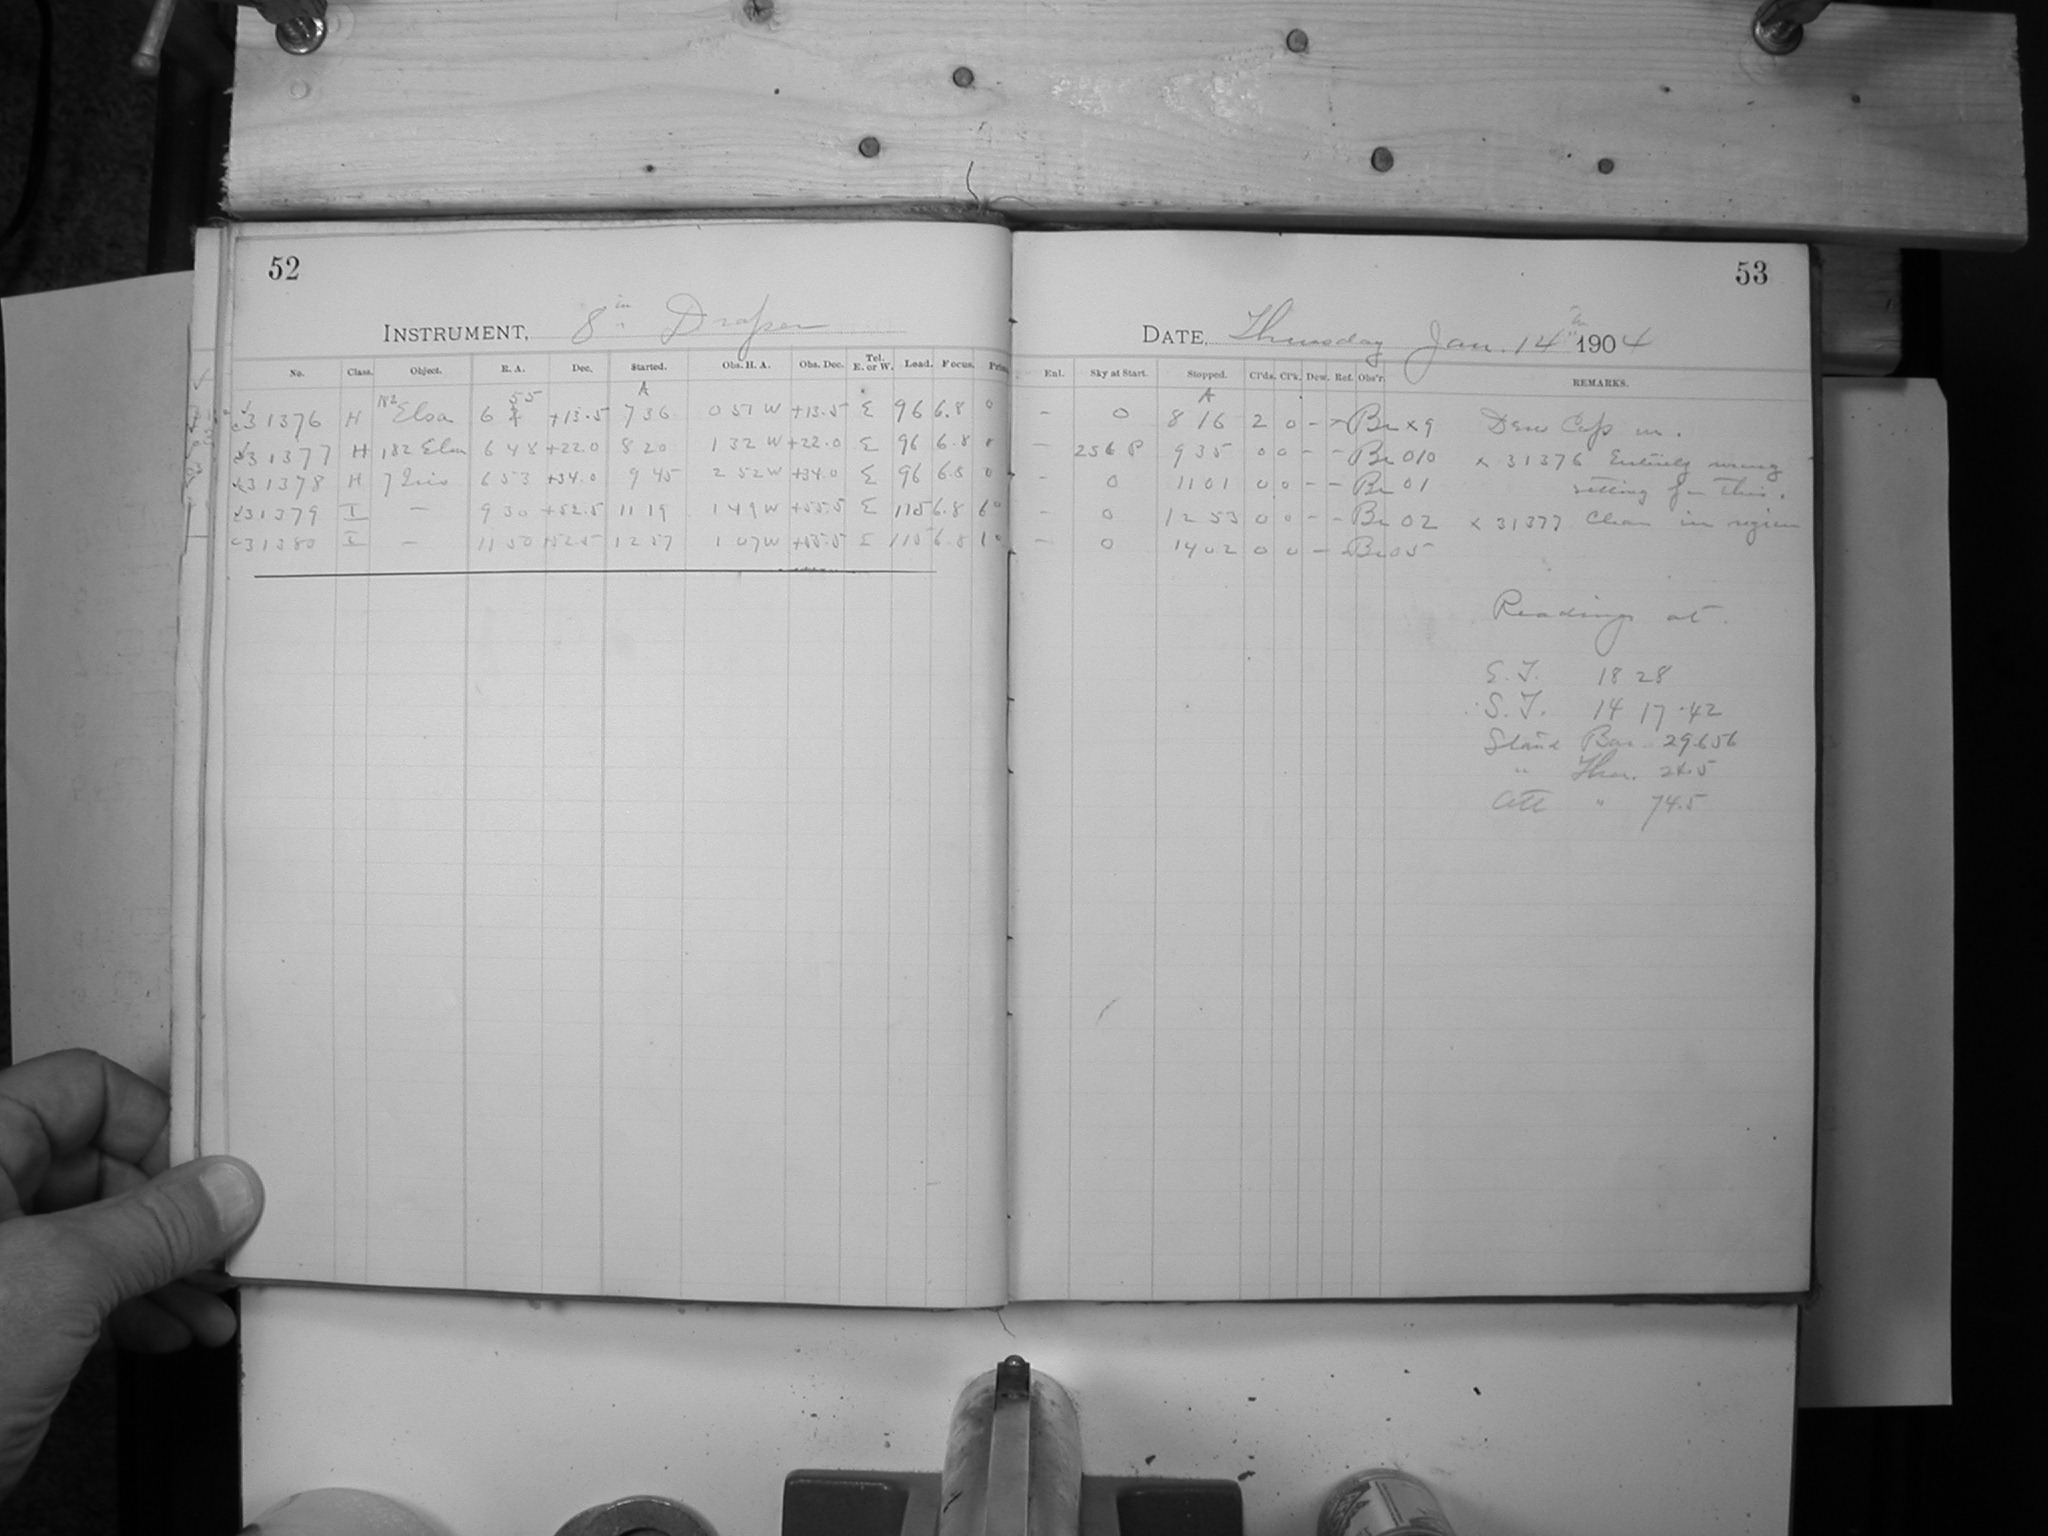 52
INSTRUMENT, 8 in Draper
No. Class. Object. R. A. Dec. Started. Obs. H. A. Obs. Dec. Tel. E. or W. Load. Focus.
55 A
31376 H 182 Elsa 6 +13.5 7 36 0 51 W +13.5 E 96 6.8 0
31377 H 182 Elsa 6 48 +22.0 8 20 1 32 W +22.0 E 96 6.8 0
31378 H 7 Iris 6 53 +34.0 9 45 2 52 W +34.0 E 96 6.8 0
31379 I — 9 30 +52.5 11 19 1 49 W E 115 6.8
31380 I — 11 50 +52.5 12 57 1 07 W E 115 6.8
53
DATE, Thursday Jan. 14 th 1904
Enl. Sky at Start. Stopped. Cl'ds. Cl'k. Dew. Ref. Obs'r. REMARKS.
A
– 0 8 16 2 0 – – Br x9 Dew Cap on.
– 256 P 9 35 0 0 – – Br 010 x 31376 Entirely wrong
setting for this.
– 0 11 01 0 0 – – Br 01
– 0 12 53 0 0 – – Br 02 x 31377 Clear in region
– 0 14 02 0 0 – – Br 05
Readings at
S. T. 14 17 .42
Bar. 29.656
" Ther. 24.5
Att " 74.5